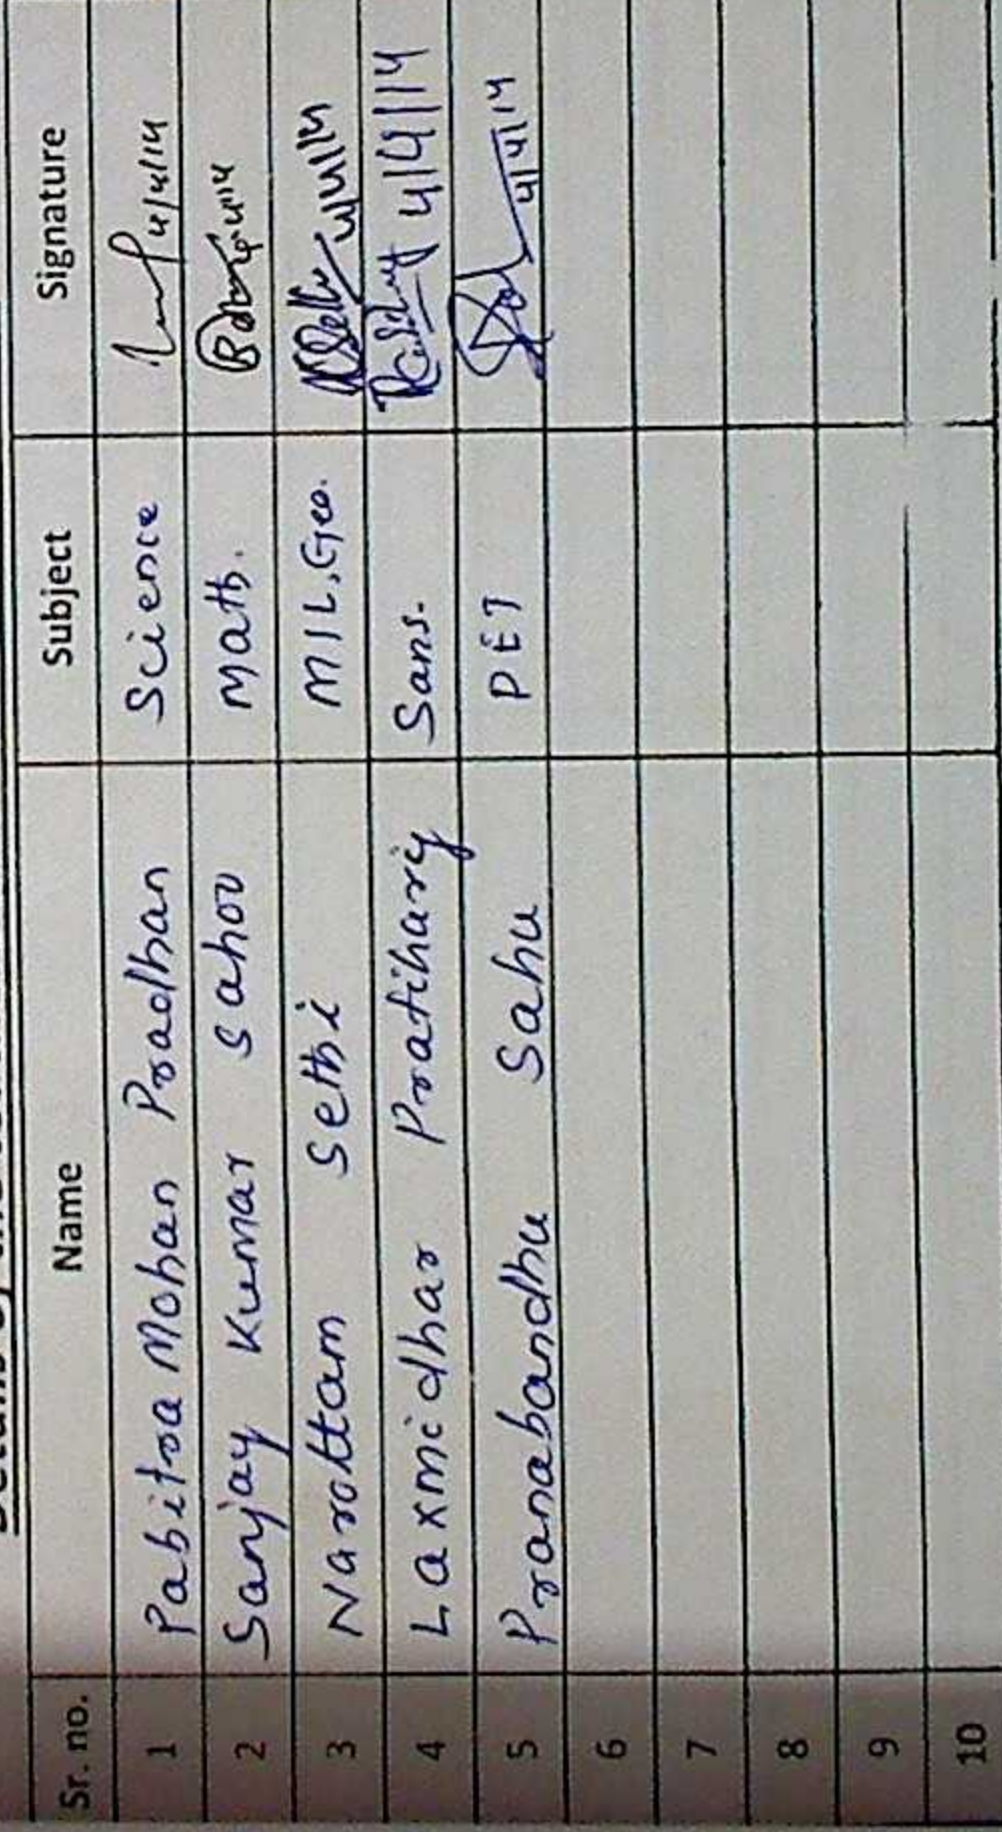 Sr. no. Name Subject Signature
1 Pabitra Mohan Pradhan Science 4/4/14
2 Sanjay Kumar Sahoo Math.
3 Narottam Sethi MIL, Geo. 4/4/14
4 Laxmidhar Pratihary Sans. 4/4/14
5 Pranabandhu Sahu PET 4/4/14
6
7
8
9
10